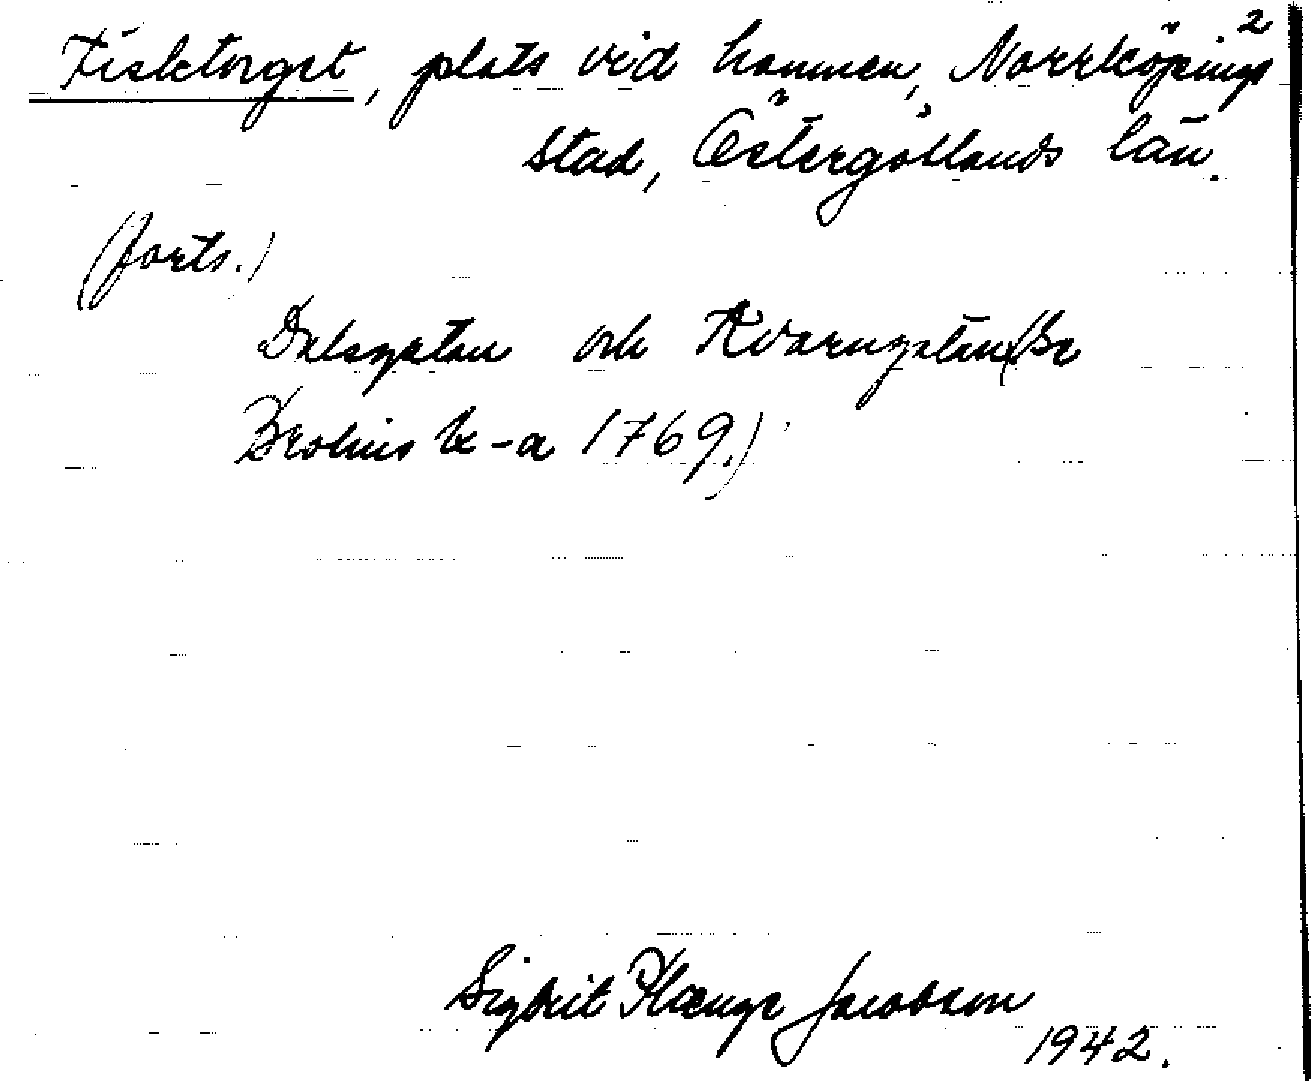 2
Fisktorget, plats vid hamnen, Norrköpings
stad, Östergötlands län.
(forts.)
Dalsgatan och Kvarngatan (Se
Brolins k-a 1769.)
Sigbrit Plænge Jacobson
1942.